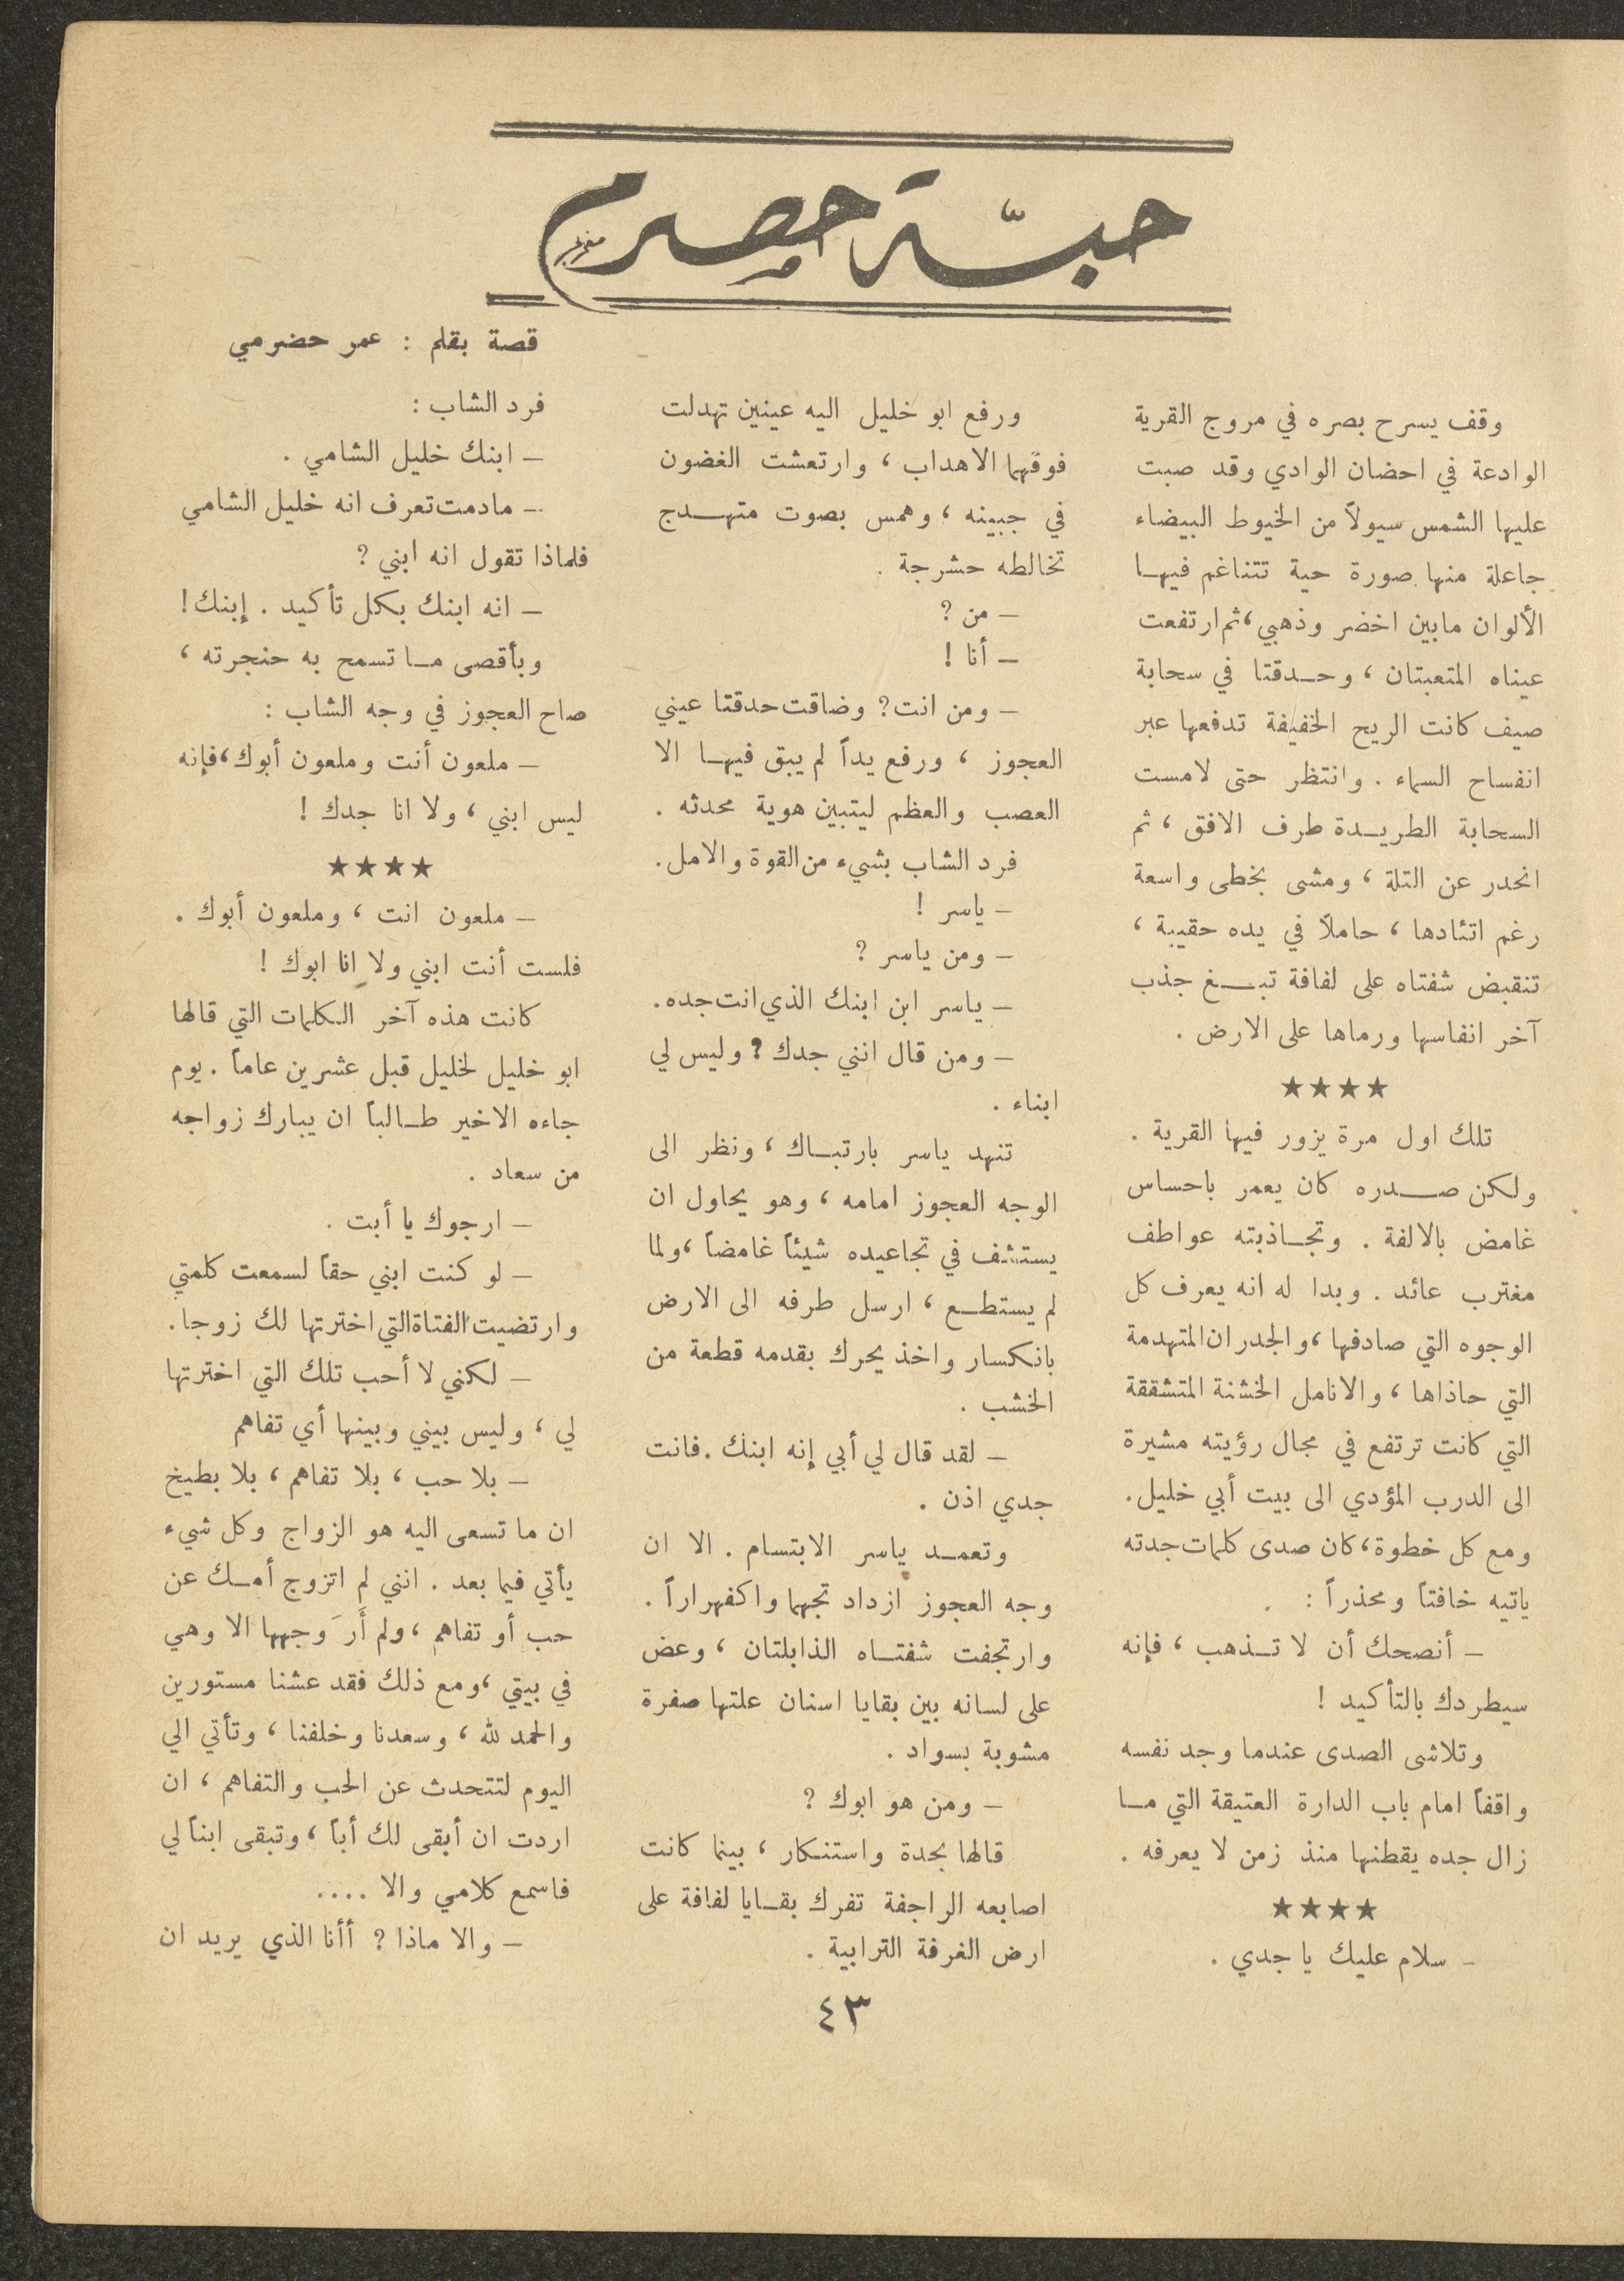 حبّة حصرم
قصة بقلم : عمر حضرمي
وقف يسرح بصره في مروج القرية
الوادعة في احضان الوادي وقد صبت
عليها الشمس سيولاً من الخيوط البيضاء
جاعلة منها صورة حية تتناغم فيهـا
الألوان مابين اخضر وذهبي ، ثم ارتفعت
عيناه المتعبتان ، وحـدقتا في سحابة
صيف كانت الريح الخفيفة تدفعها عبر
انفساح السماء . وانتظر حتى لامست
السحابة الطريـدة طرف الافق ، ثم
انحدر عن التلة ، ومشى بخطى واسعة
رغم اتئادها ، حاملاً في يده حقيبة ،
تنقبض شفتاه على لفافة تبـغ جذب
آخر انفاسها ورماها على الارض .
★★★★
تلك اول مرة يزور فيها القرية .
ولكن صـدره كان يعمر باحساس
غامض بالالفة . وتجـاذبته عواطف
مغترب عائد . وبدا له انه يعرف كل
الوجوه التي صادفها ، والجدران المتهدمة
التي حاذاها ، والانامل الخشنة المتشققة
التي كانت ترتفع في مجال رؤيته مشيرة
الى الدرب المؤدي الى بيت أبي خليل .
ومع كل خطوة ، كان صدى كلمات جدته
ياتيه خافتاً ومحذراً :
– أنصحك أن لا تـذهب ، فإنه
سيطردك بالتأكيد !
وتلاشى الصدى عندما وجد نفسه
واقفاً امام باب الدارة العتيقة التي مـا
زال جده يقطنها منذ زمن لا يعرفه .
★★★★
– سلام عليك يا جدي .
ورفع ابو خليل اليه عينين تهدلت
فوقهما الاهداب ، وارتعشت الغضون
في جبينه ، وهمس بصوت متهـدج
تخالطه حشرجة .
– من ?
– أنا !
– ومن انت ? وضاقت حدقتا عيني
العجوز ، ورفع يداً لم يبق فيهـا الا
العصب والعظم ليتبين هوية محدثه .
فرد الشاب بشيء من القوة والامل .
– ياسر !
– ومن ياسر ?
– ياسر ابن ابنك الذي انت جده .
– ومن قال انني جدك ? وليس لي
ابناء .
تنهد ياسر بارتبـاك ، ونظر الى
الوجه العجوز امامه ، وهو يحاول ان
يستشف في تجاعيده شيئاً غامضاً ، ولما
لم يستطـع ، ارسل طرفه الى الارض
بانكسار واخذ يحرك بقدمه قطعة من
الخشب .
– لقد قال لي أبي إنه ابنك . فانت
جدي اذن .
وتعمـد ياسر الابتسام . الا ان
وجه العجوز ازداد تجهما واكفهراراً .
وارتجفت شفتـاه الذابلتان ، وعض
على لسانه بين بقايا اسنان علتها صفرة
مشوبة بسواد .
– ومن هو ابوك ?
قالها بحدة واستنكار ، بينما كانت
اصابعه الراجفة تفرك بقـايا لفافة على
ارض الغرفة الترابية .
فرد الشاب :
– ابنك خليل الشامي .
– مادمت تعرف انه خليل الشامي
فلماذا تقول انه ابني ?
– انه ابنك بكل تأكيد . إبنك !
وبأقصى مـا تسمح به حنجرته ،
صاح العجوز في وجه الشاب :
– ملعون أنت وملعون أبوك ، فإنه
ليس ابني ، ولا انا جدك !
★★★★
– ملعون انت ، وملعون أبوك .
فلست أنت ابني ولا انا ابوك !
كانت هذه آخر الكلمات التي قالها
ابو خليل لخليل قبل عشرين عاماً . يوم
جاءه الاخير طـالباً ان يبارك زواجه
من سعاد .
– ارجوك يا أبت .
– لو كنت ابني حقاً لسمعت كلمتي
وارتضيت الفتاة التي اخترتها لك زوجا .
– لكني لا أحب تلك التي اخترتها
لي ، وليس بيني وبينها أي تفاهم
– بلا حب ، بلا تفاهم ، بلا بطيخ
ان ما تسعى اليه هو الزواج وكل شيء
يأتي فيما بعد . انني لم اتزوج أمـك عن
حب أو تفاهم ، ولم أَرَ وجهها الا وهي
في بيتي ، ومع ذلك فقد عشنا مستورين
والحمد لله ، وسعدنا وخلفنا ، وتأتي الي
اليوم لتتحدث عن الحب والتفاهم ، ان
اردت ان أبقى لك أباً ، وتبقى ابناً لي
فاسمع كلامي والا ....
– والا ماذا ? أأنا الذي يريد ان
٤٣